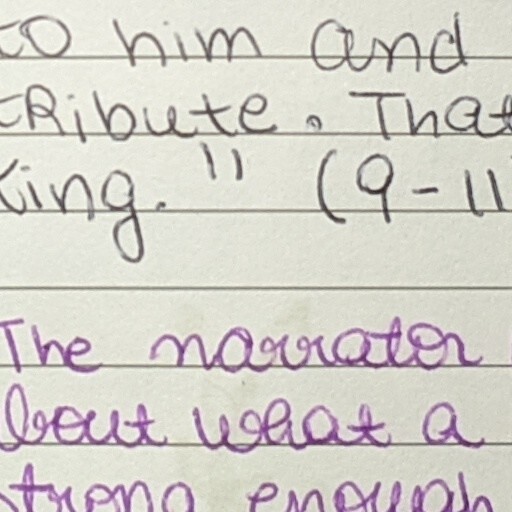 to him and
tribute. That
king." (9-11
The narrator
bout what a
trong enough